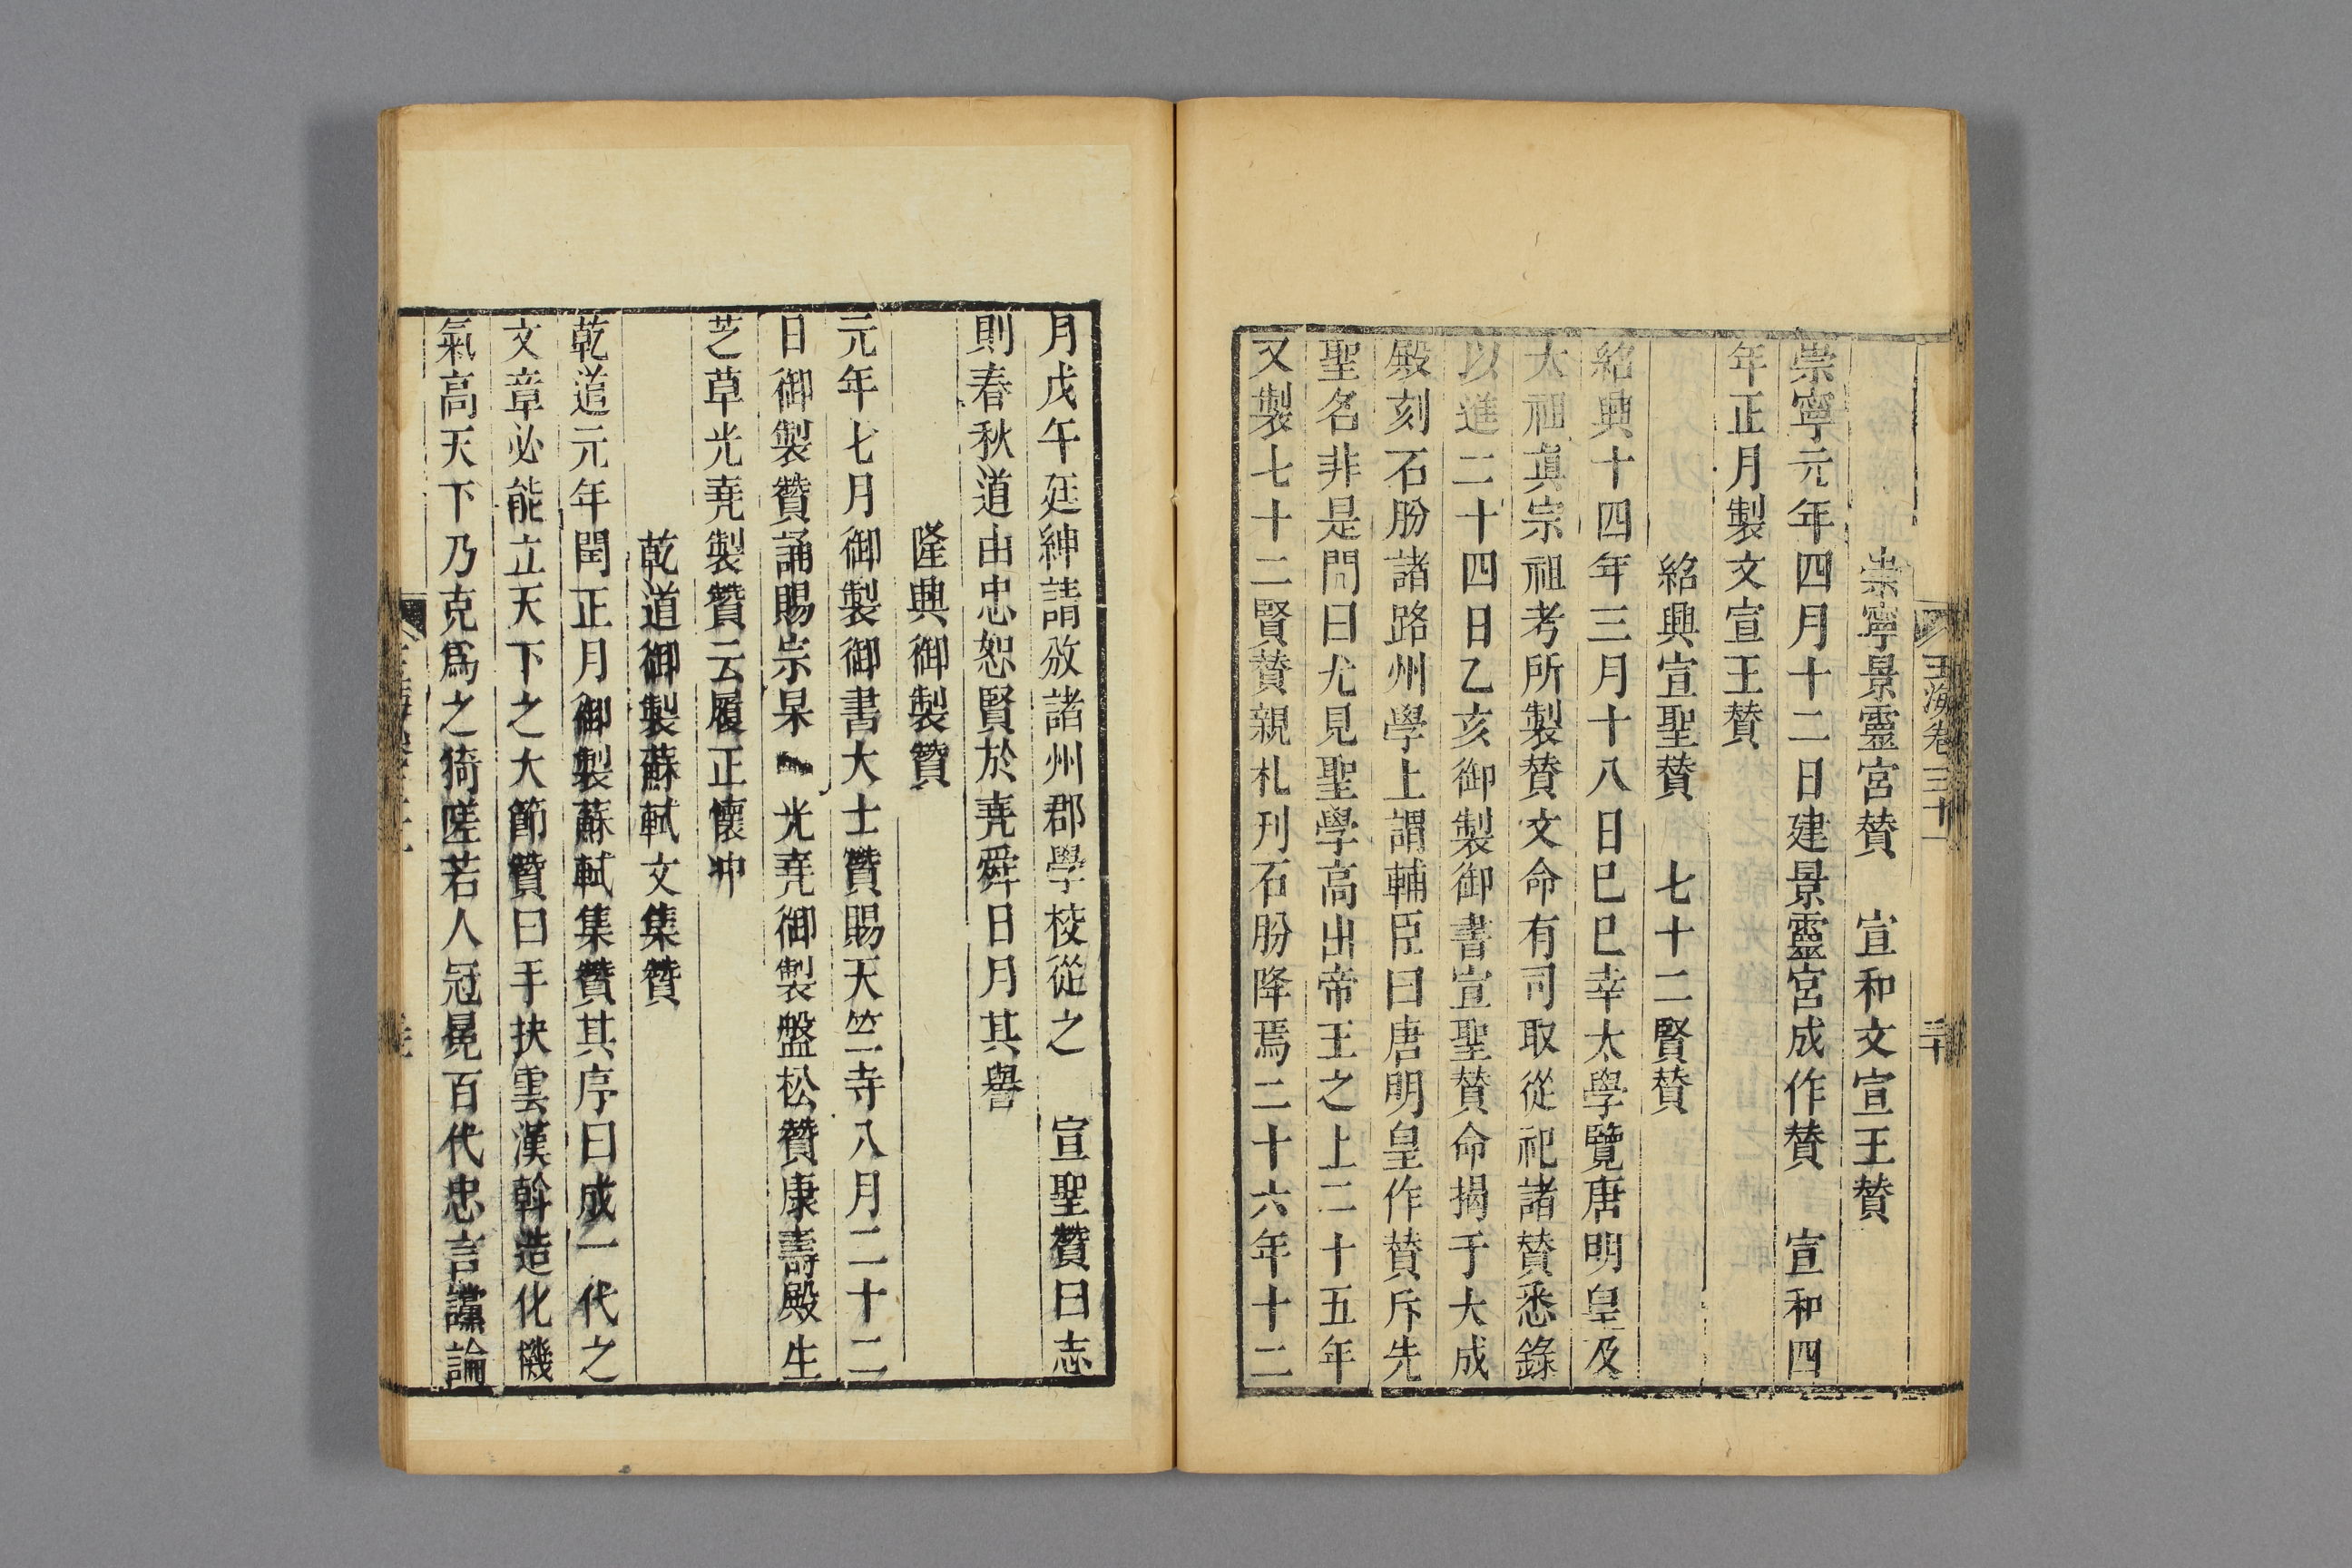 玉海卷三十一
崇寧景靈宮贊　宣和文宣王贊
崇寧元年四月十二日建景靈宮成作贊　宣和四
年正月製文宣王贊
紹興宣聖贊　七十二賢贊
紹興十四年三月十八日巳巳幸太學覽唐明皇及
太祖真宗祖考所製贊文命有司取從祀諸贊悉錄
以進二十四日乙亥御製御書宣聖贊命揭于大成
殿刻石肦諸路州學上謂輔臣曰唐明皇作贊斥先
聖名非是問曰尤見聖學高出帝王之上二十五年
又製七十二賢贊親札刊石肦降焉二十六年十二
月戊午廷紳請放諸州郡學校從之　宣聖贊曰志
則春秋道由忠恕賢於堯舜日月其譽
隆興御製贊
元年七月御製御書大士贊賜天竺寺八月二十二
日御製贊誦賜宗杲　光堯御製盤松贊康壽殿生
芝草光堯製贊云履正懷冲
乾道御製蘇軾文集贊
乾道元年閏正月御製蘇軾集贊其序曰成一代之
文章必能立天下之大節贊曰手抉雲漢斡造化機
氣高天下乃克爲之猗嗟若人冠冕百代忠言讜論